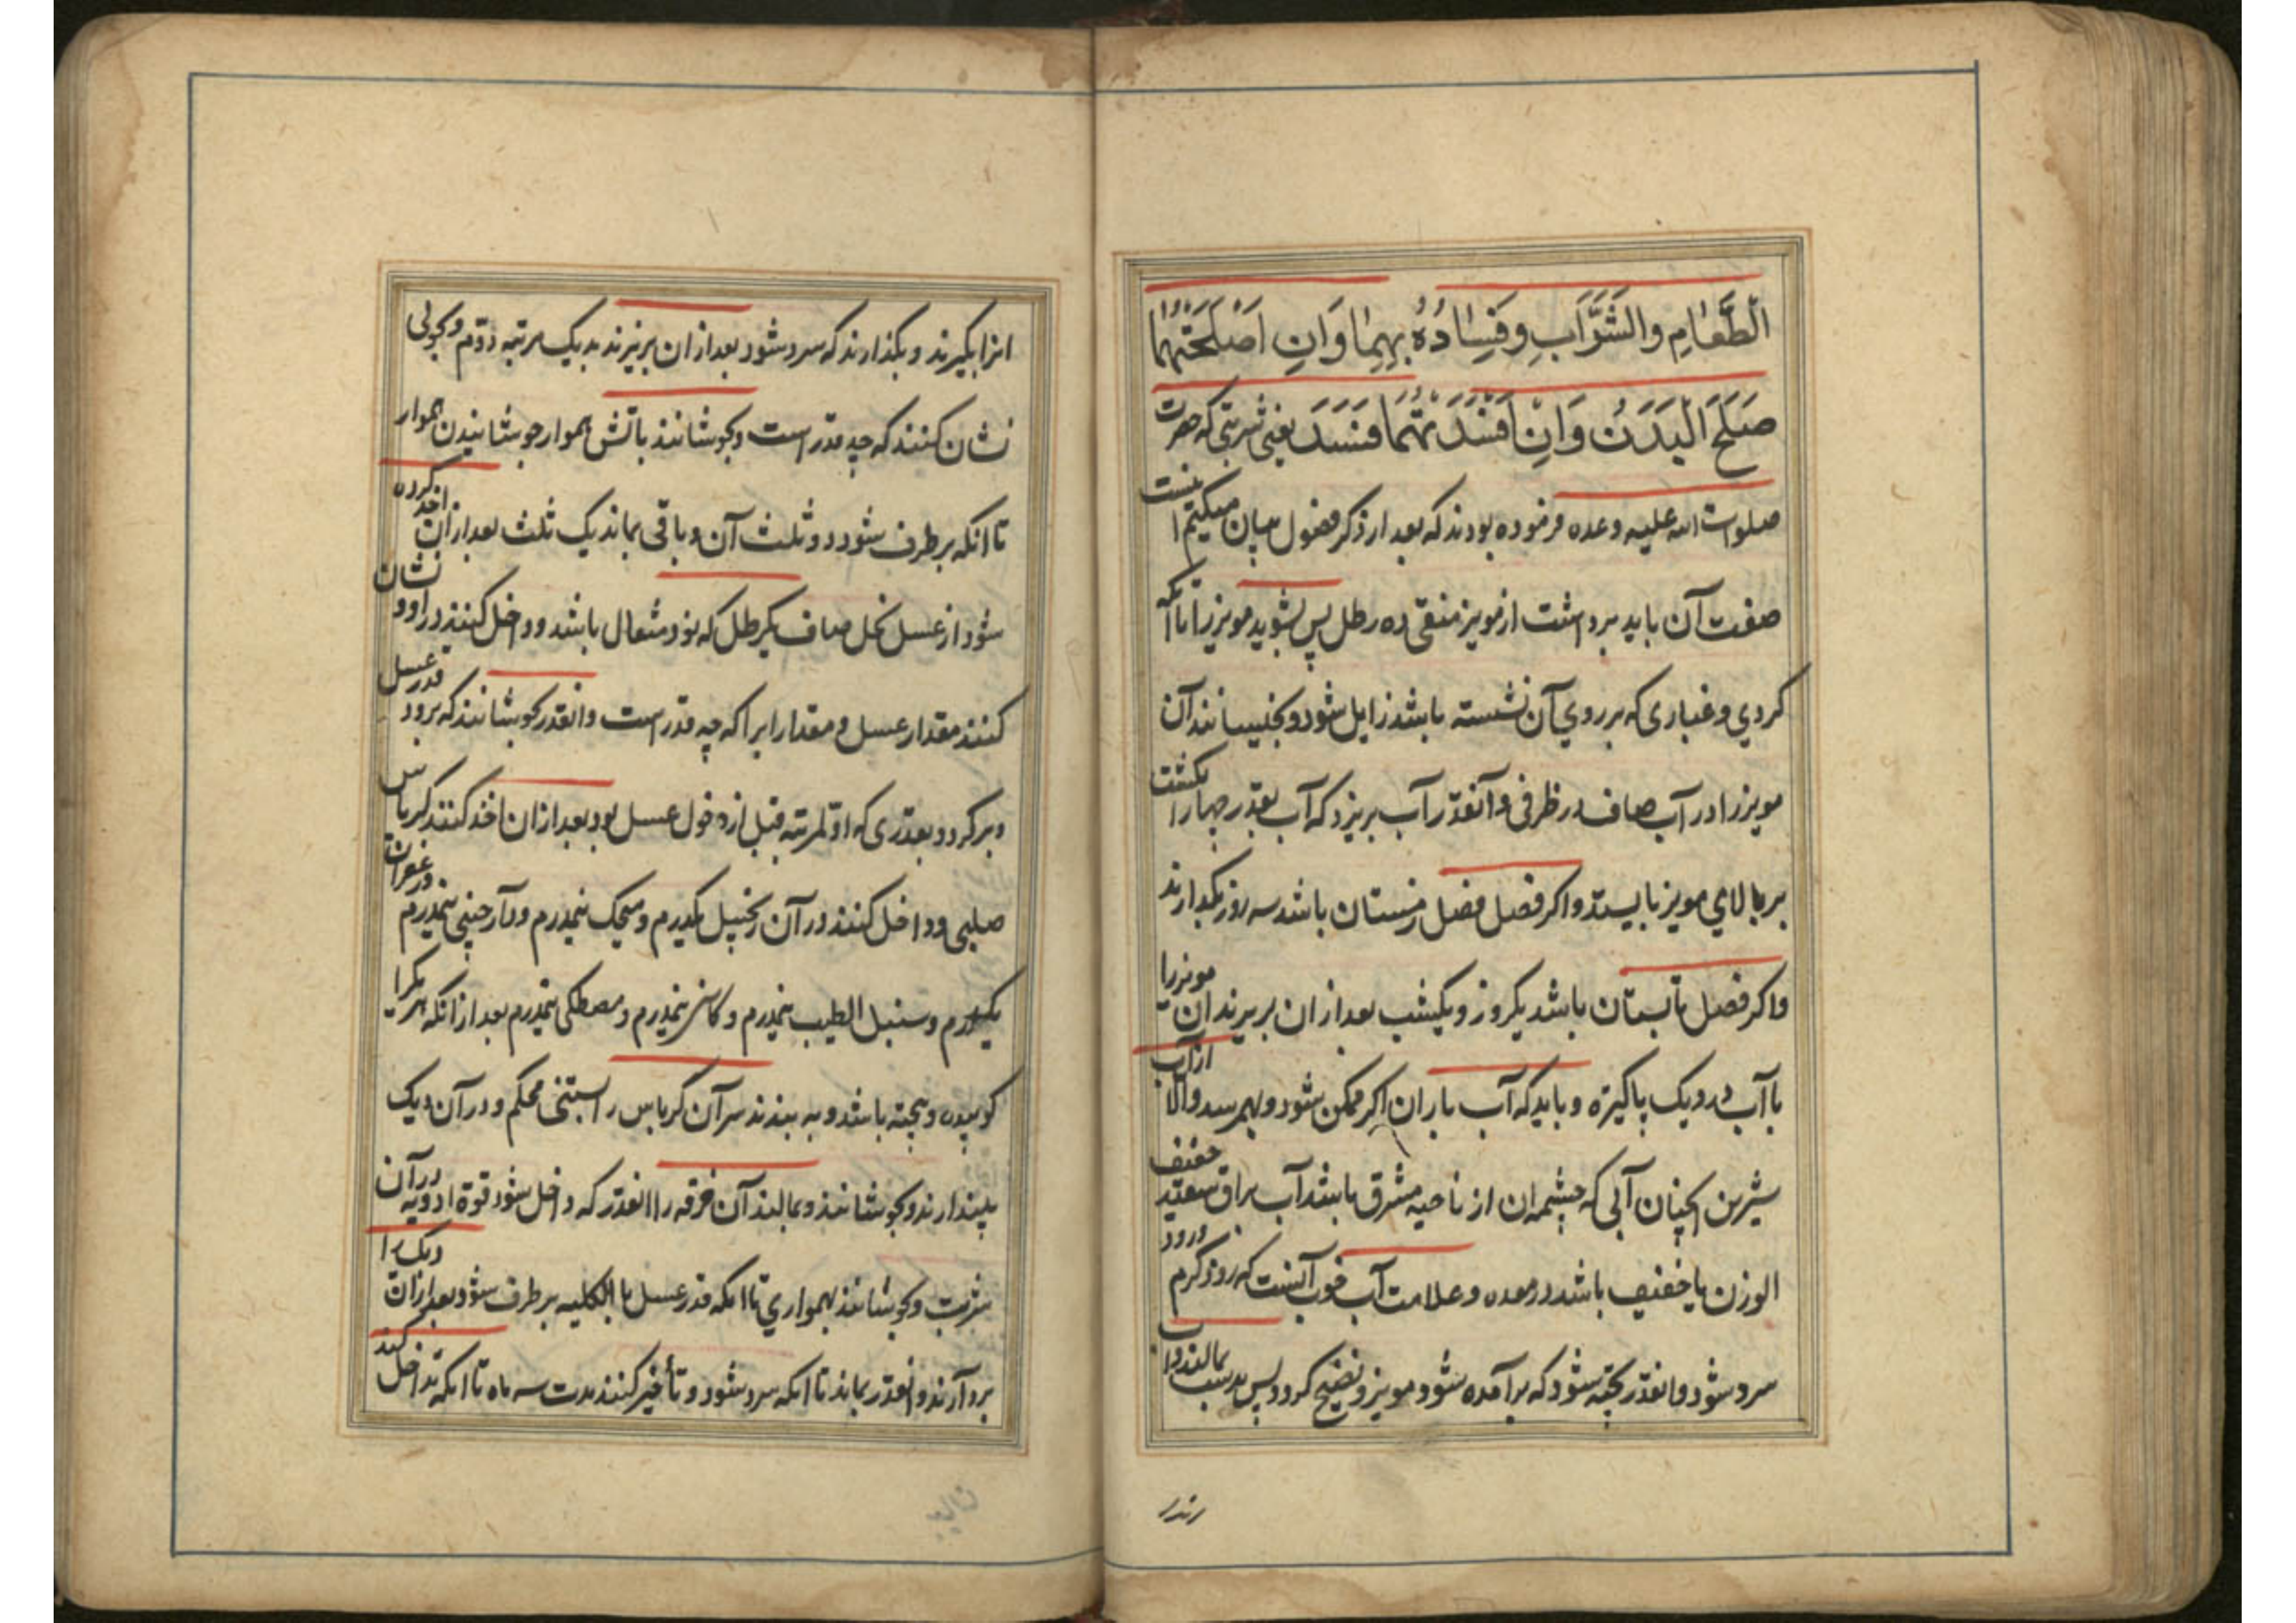 الطَّعامِ والشَّرَابِ وَفَسادُهُ بِهِما وَاِن اَصْلَحْتَهُما
صَلَحَ الْبَدَنُ وَاِنْ اَفْسَدْتَهُمَا فَسَدَ یعنی شربتی که حضرت
صلوات الله علیه وعده فرموده بودند که بعد از ذکر فصول بیان میکنیم اینست
صفت آن باید برداشت از مویز منقی ده رطل پس بشوید مویز را تا آنکه
کردی و غباری که بر روی آن نشسته باشد زایل شود و بخیسانند آن
مویز را در آب صاف در ظرفی و آنقدر آب بریزد که آب بقدر چهار انکشت
بر بالای مویز بایستد و اکر فصل فصل زمستان باشد سه روز بکذارند
و اکر فصل تابستان باشد یکروز و یکشب بعد از ان بریزند ان مویز را
با آب در دیک پاکیزه و باید که آب باران اکر ممکن شود و بهم رسد والا از آب
شیرین انچنان آبی که چشمه ان از ناحیه مشرق باشد آب براق سفید خفیف
الوزن یا خفیف باشد در معده و علامت آب خوب آنست که زود کرم و زود
سرد شود و انقدر پخته شود که برآمده شود مویز و نضیج کردد پس بدست بمالند و آب
اثرا بکیرند و بکذارند که سرد شود بعد از ان بریزند بدیک مرتبه دوم و بچوبی
نشان کنند که چه قدر است و بجوشانند باتش هموار جوشانیدن هموار
تا انکه بر طرف شود دو ثلث آن و باقی بماند یک ثلث بعد از ان اخذ کرده
شود از عسل نحل صاف یکرطل که نود مثقال باشد و داخل کنند در او و نشان
کنند مقدار عسل و مقدار ابرا که چه قدر است و انقدر بجوشانند که برود قدر عسل
و برکردد بقدری که اول مرتبه قبل از دخول عسل بود بعد از ان اخذ کنند کرباس
صلبی و داخل کنند در آن زنجبیل یکدرم و میخک نیمدرم و دارچینی نیمدرم و زعفران
یکدرم و سنبل الطیب نیمدرم و کاسنی نیمدرم و مصطکی نیمدرم بعد از انکه هر یکرا
کوبیده و بیخته باشد و به بندند سر آن کرباس را بستنی محکم و در آن دیک
بیندازند و بجوشانند و بمالند آن خرقه را انقدر که داخل شود قوة ادویه در آن
شربت و بجوشانند بهمواری تا انکه قدر عسل بالکلیه بر طرف شود بعد از ان دیک را
بردارند و انقدر بماند تا انکه سرد شود و تأخیر کنند مدت سه ماه تا انکه تداخل کند